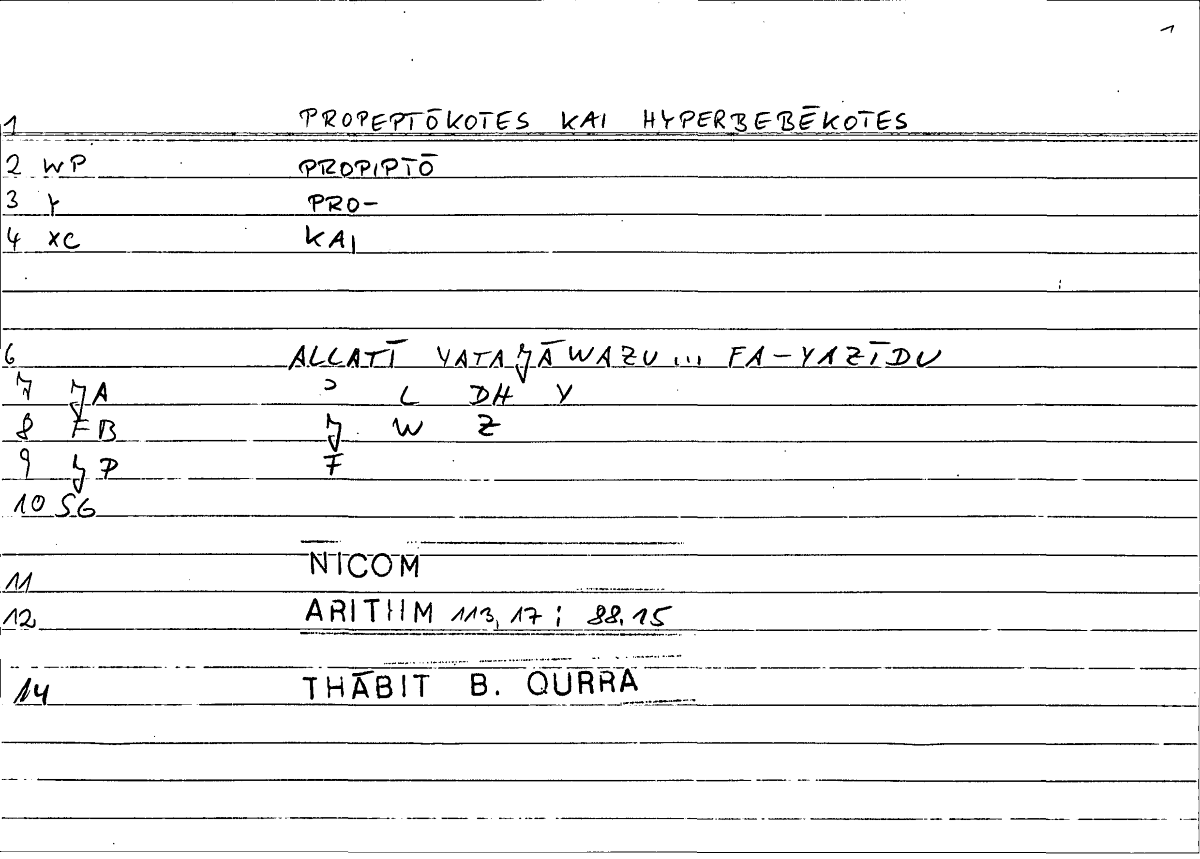 1
1 PROPEPTŌKOTES KAI HYPERBEBĒKOTES
2 WP PROPIPTŌ
3 Y PRO-
4 XC KAI
6 ALLATĪ YATAJĀWAZU ... FA-YAZĪDU
7 JA ʾ L DH Y
8 FB J W Z
9 JP F
10 SG
11 NICOM
12 ARITHM 113,17 ; 88,15
14 THĀBIT B. QURRA